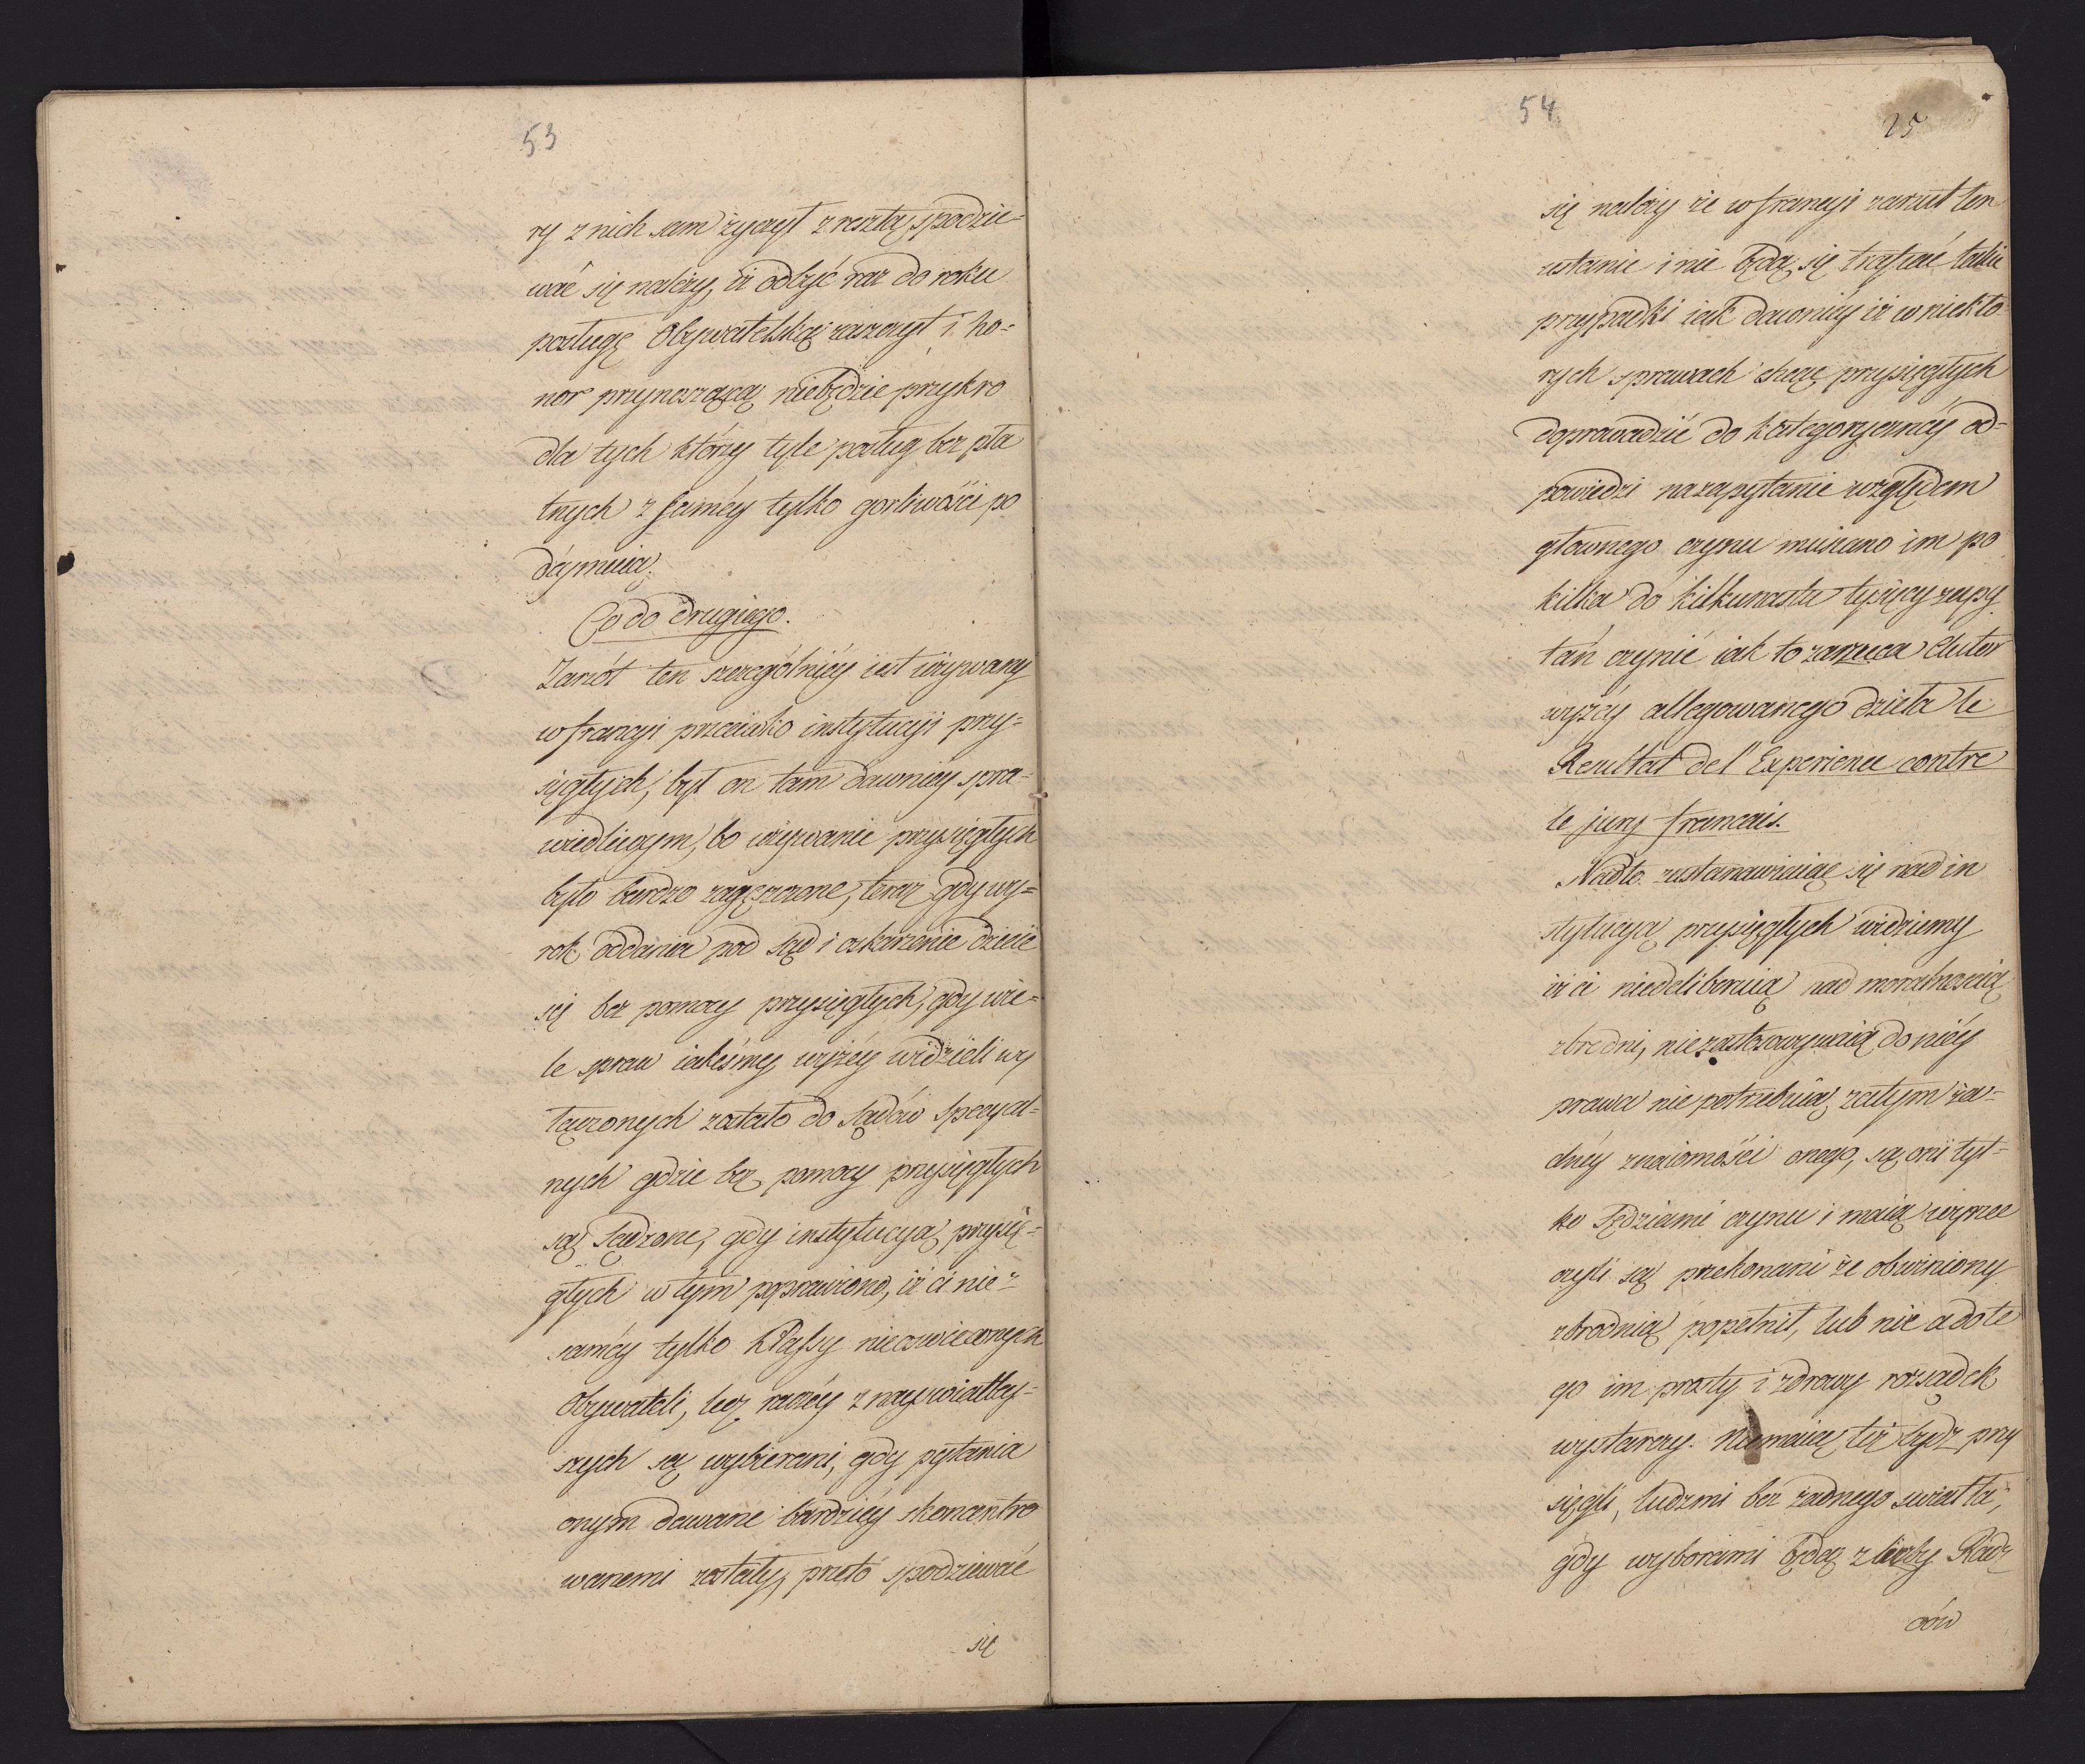 53
ry z nich sam życzył z resztą spodzie-
wać się należy, iż odbyć raz do roku
posługę Obywatelską zaszczyt i ho-
nor przynoszącą niebędzie przykro
dla tych którzy tyle posług bez pła
tnych z saméy tylko gorliwości po
dáymuią.
Co do drugiego.
Zarzót ten szczególniéy iest używany
w francyi przeciwko instytucyi przy-
sięgłych, był on tam dawniéy spra-
wiedliwym, bo wzywanie przysięgłych
było bardzo zagęszczone, teraz gdy wy-
rok oddania pod sąd i oskarżenie dzieie
się bez pomocy przysięgłych, gdy wie-
le spraw iakeśmy wyżéy widzieli wy
łączonych zostało do sądów specyal-
nych gdzie bez pomocy przysięgłych
są sądzone, gdy instytucyą przysię-
głych w tym poprawiono, iż ci nie z
saméy tylko klassy nieoswieconych
Obywateli, lecz raczéy z nayswiatley-
szych są wybierani, gdy pytania
onym dawane bardziéy skoncentro
wanemi zostały, przeto spodziewać
się
54
25
się należy że w francyi zarzut ten
ustanie i nie będą się trafiać takie
przypadki iak dawniéy iż w niekto-
rych sprawach chcąc przysięgłych
doprowadzić do kategoryczney od-
powiedzi na zapytanie względem
głownego czynu musiano im po
kilka do kilkunastu tysięcy zapy
tań czynić iak to zarzuca Autor
wyżéy allegowanego dzieła le
Resultat de l'Experience contre
le jury francais.
Nadto zastanawiaiąc się nad in
stytucyą przysięgłych widziemy
iż ci niedeliberuią nad moralnością
zbrodni, niezastosowywaią do niéy
prawa nie potrzebuią zatym ża-
dnéy znaiomości onego, są oni tyl-
ko Sędziami czynu i maią wyrzec
czyli są przekonani że obwiniony
zbrodnią popełnił, lub nie a do te
go im prosty i zdrowy rozsądek
wystarczy. Niemaią téż bydź przy
sięgli, ludzmi bez żadnego swiatła,
gdy wyborami będą z liczby Radz
ców